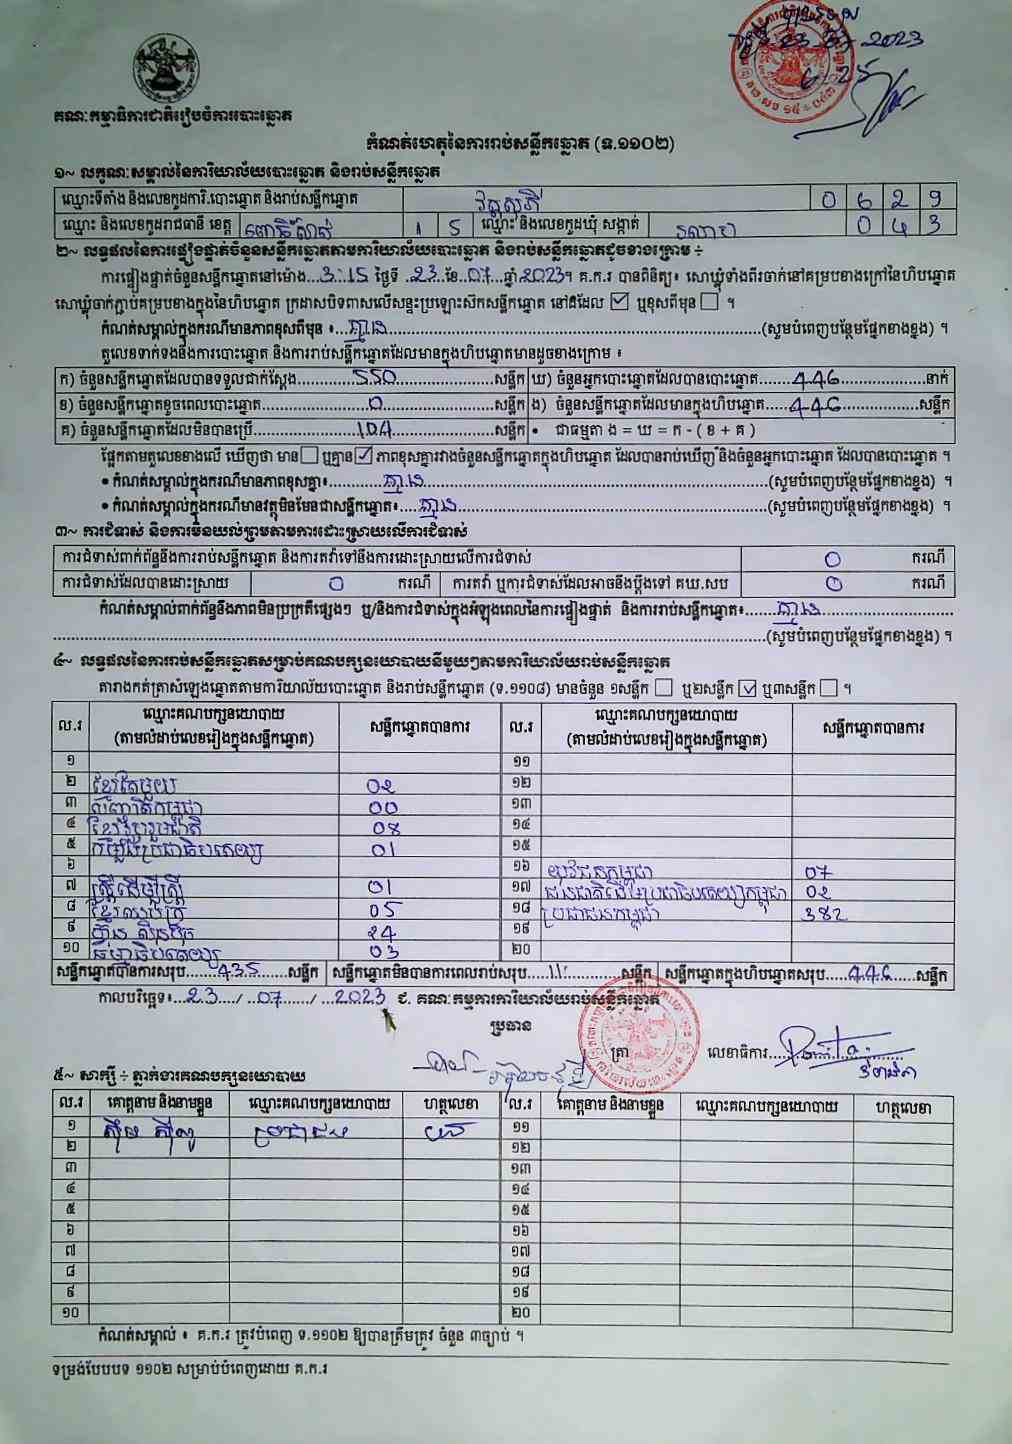 23 2023
6:25
គណៈកម្មាធិការជាតិរៀបចំការបោះឆ្នោត
កំណត់ហេតុនៃការរាប់សន្លឹកឆ្នោត (ទ.១១០២)
១~ លក្ខណៈសម្គាល់នៃការិយាល័យបោះឆ្នោត និងរាប់សន្លឹកឆ្នោត
ឈ្មោះទីតាំង និងលេខកូដការិ.បោះឆ្នោត និងរាប់សន្លឹកឆ្នោត 0 6 2 9
ឈ្មោះ និងលេខកូដរាជធានី ខេត្ត ពោធិ៍សាត់ 1 5 ឈ្មោះ និងលេខកូដឃុំ សង្កាត់ 0 4 3
២~ លទ្ធផលនៃការផ្ទៀងផ្ទាត់ចំនួនសន្លឹកឆ្នោតតាមការិយាល័យបោះឆ្នោត និងរាប់សន្លឹកឆ្នោតដូចខាងក្រោម ÷
ការផ្ទៀងផ្ទាត់ចំនួនសន្លឹកឆ្នោតនៅម៉ោង...3:15 ថ្ងៃទី .23.ខែ.07..ឆ្នាំ 2023។ គ.ក.រ បានពិនិត្យ៖ សោឃ្លុំទាំងពីរចាក់នៅគម្របខាងក្រៅនៃហិបឆ្នោត
សោឃ្លុំចាក់ភ្ជាប់គម្របខាងក្នុងនៃហិបឆ្នោត ក្រដាសបិទពាសលើសន្ទះប្រឡោះស៊កសន្លឹកឆ្នោត នៅដដែល ☑ ឬខុសពីមុន ☐ ។
កំណត់សម្គាល់ក្នុងករណីមានភាពខុសពីមុន ៖...គ្មាន...(សូមបំពេញបន្ថែមផ្នែកខាងខ្នង) ។
តួលេខទាក់ទងនឹងការបោះឆ្នោត និងការរាប់សន្លឹកឆ្នោតដែលមានក្នុងហិបឆ្នោតមានដូចខាងក្រោម ៖
ក) ចំនួនសន្លឹកឆ្នោតដែលបានទទួលជាក់ស្ដែង...550...សន្លឹក ឃ) ចំនួនអ្នកបោះឆ្នោតដែលបានបោះឆ្នោត...446...នាក់
ខ) ចំនួនសន្លឹកឆ្នោតខូចពេលបោះឆ្នោត...0...សន្លឹក ង) ចំនួនសន្លឹកឆ្នោតដែលមានក្នុងហិបឆ្នោត...446...សន្លឹក
គ) ចំនួនសន្លឹកឆ្នោតដែលមិនបានប្រើ...104...សន្លឹក • ជាធម្មតា ង = ឃ = ក - ( ខ + គ )
ផ្អែកតាមតួលេខខាងលើ ឃើញថា មាន ☐ ឬគ្មាន ☑ ភាពខុសគ្នារវាងចំនួនសន្លឹកឆ្នោតក្នុងហិបឆ្នោត ដែលបានរាប់ឃើញ និងចំនួនអ្នកបោះឆ្នោត ដែលបានបោះឆ្នោត ។
• កំណត់សម្គាល់ក្នុងករណីមានភាពខុសគ្នា៖...គ្មាន...(សូមបំពេញបន្ថែមផ្នែកខាងខ្នង) ។
• កំណត់សម្គាល់ក្នុងករណីមានវត្ថុមិនមែនជាសន្លឹកឆ្នោត៖...គ្មាន...(សូមបំពេញបន្ថែមផ្នែកខាងខ្នង) ។
៣~ ការជំទាស់ និងការមិនយល់ព្រមតាមការដោះស្រាយលើការជំទាស់
ការជំទាស់ពាក់ព័ន្ធនឹងការរាប់សន្លឹកឆ្នោត និងការតវ៉ាទៅនឹងការដោះស្រាយលើការជំទាស់ 0 ករណី
ការជំទាស់ដែលបានដោះស្រាយ 0 ករណី ការតវ៉ា ឬការជំទាស់ដែលអាចនឹងប្ដឹងទៅ គឃ.សប 0 ករណី
កំណត់សម្គាល់ពាក់ព័ន្ធនឹងភាពមិនប្រក្រតីផ្សេងៗ ឬ/និងការជំទាស់ក្នុងអំឡុងពេលនៃការផ្ទៀងផ្ទាត់ និងការរាប់សន្លឹកឆ្នោត៖...គ្មាន...
...(សូមបំពេញបន្ថែមផ្នែកខាងខ្នង) ។
៤~ លទ្ធផលនៃការរាប់សន្លឹកឆ្នោតសម្រាប់គណបក្សនយោបាយនីមួយៗតាមការិយាល័យរាប់សន្លឹកឆ្នោត
តារាងកត់ត្រាសំឡេងឆ្នោតតាមការិយាល័យបោះឆ្នោត និងរាប់សន្លឹកឆ្នោត (ទ.១១០៨) មានចំនួន ១សន្លឹក ☐ ឬ២សន្លឹក ☑ ឬ៣សន្លឹក ☐ ។
ល.រ ឈ្មោះគណបក្សនយោបាយ (តាមលំដាប់លេខរៀងក្នុងសន្លឹកឆ្នោត) សន្លឹកឆ្នោតបានការ ល.រ ឈ្មោះគណបក្សនយោបាយ (តាមលំដាប់លេខរៀងក្នុងសន្លឹកឆ្នោត) សន្លឹកឆ្នោតបានការ
១ ១១
២ ខ្មែរតែមួយ 02 ១២
៣ សញ្ជាតិកម្ពុជា 00 ១៣
៤ ខ្មែររួបរួមជាតិ 08 ១៤
៥ កម្លាំងប្រជាធិបតេយ្យ 01 ១៥
៦ ១៦ យុវជនកម្ពុជា 07
៧ ស្ត្រីដើម្បីស្ត្រី 01 ១៧ ជនជាតិដើមប្រជាធិបតេយ្យកម្ពុជា 02
៨ ខ្មែរឈប់ក្រ 05 ១៨ ប្រជាជនកម្ពុជា 382
៩ ហ៊្វុនស៊ិនប៉ិច 24 ១៩
១០ ធម្មាធិបតេយ្យ 03 ២០
សន្លឹកឆ្នោតបានការសរុប...435...សន្លឹក សន្លឹកឆ្នោតមិនបានការពេលរាប់សរុប...11...សន្លឹក សន្លឹកឆ្នោតក្នុងហិបឆ្នោតសរុប...446...សន្លឹក
កាលបរិច្ឆេទ៖...23.../...07.../...2023 ជ. គណៈកម្មការការិយាល័យរាប់សន្លឹកឆ្នោត
ប្រធាន
ត្រា លេខាធិការ
៥~ សាក្សី ÷ ភ្នាក់ងារគណបក្សនយោបាយ
ល.រ គោត្តនាម និងនាមខ្លួន ឈ្មោះគណបក្សនយោបាយ ហត្ថលេខា ល.រ គោត្តនាម និងនាមខ្លួន ឈ្មោះគណបក្សនយោបាយ ហត្ថលេខា
១ ប្រជាជន ១១
២ ១២
៣ ១៣
៤ ១៤
៥ ១៥
៦ ១៦
៧ ១៧
៨ ១៨
៩ ១៩
១០ ២០
កំណត់សម្គាល់ ៖ គ.ក.រ ត្រូវបំពេញ ទ.១១០២ ឱ្យបានត្រឹមត្រូវ ចំនួន ៣ច្បាប់ ។
ទម្រង់បែបបទ ១១០២ សម្រាប់បំពេញដោយ គ.ក.រ